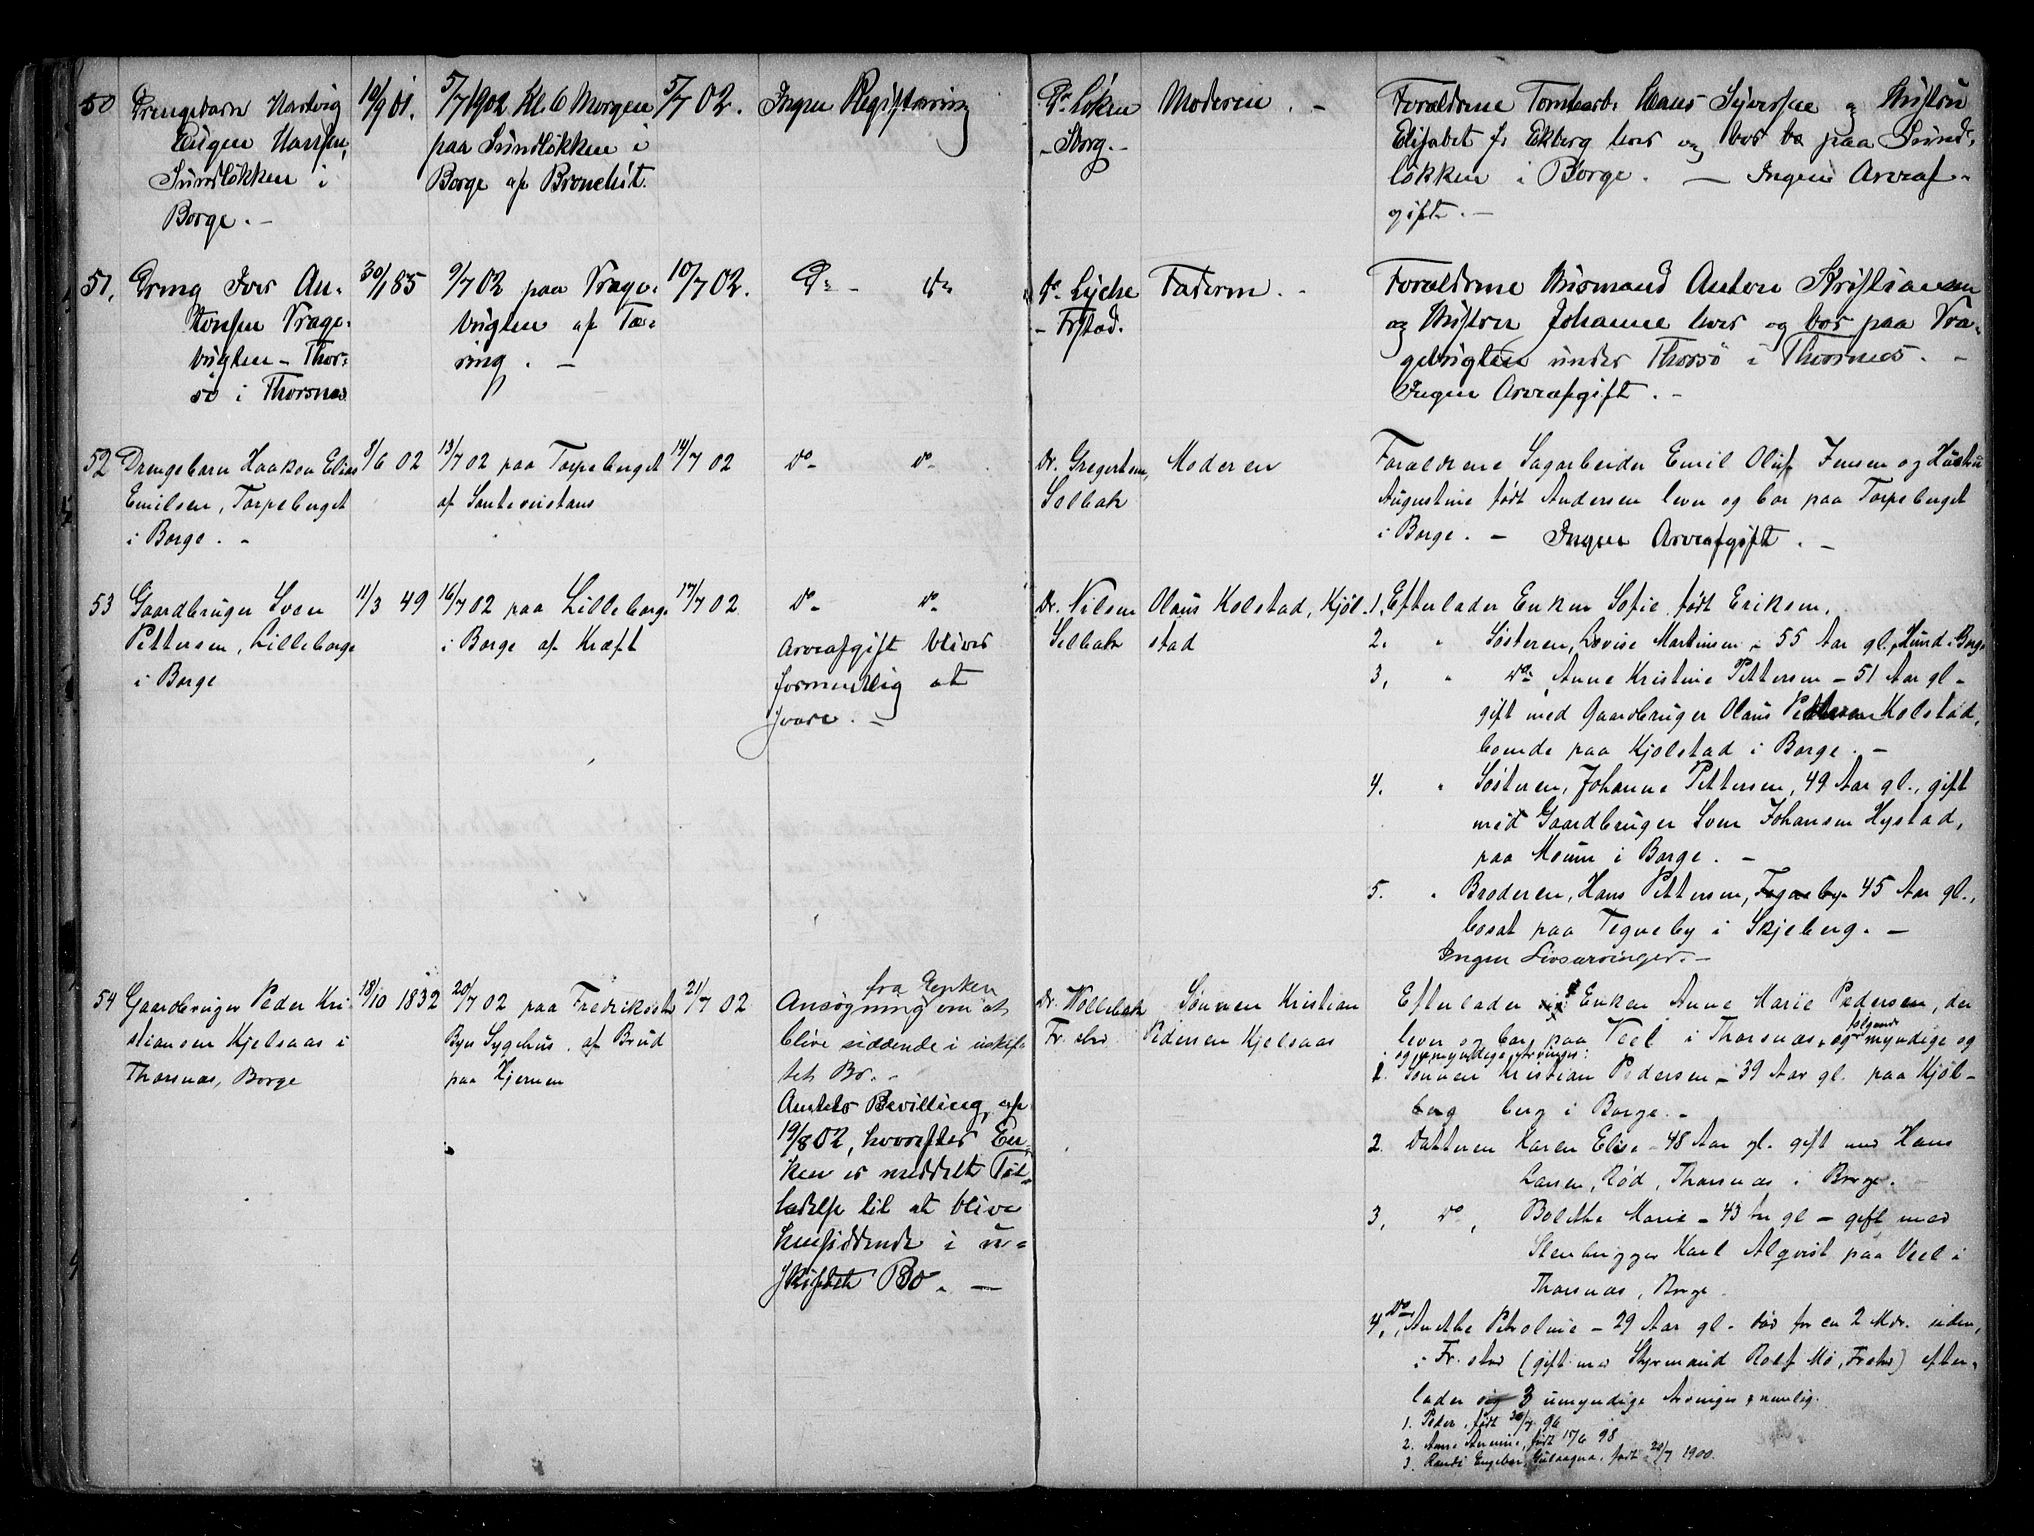 50 Drengebarn Hartvig
Eugen Hansen,
Sundløkken i
Borge. -
10/9 01.
5/7 1902 Kl. 6 Morgen
paa Sundløkken i
Borge af Bronchit.
5/7 02.
Ingen Registrering
Dr. Løken
- Sborg. -
Moderen. -
Forældrene Tomtearb. Hans Syversen og Hustru
Elisabet f. Ekberg lever og bor paa Sund-
løkken i Borge. — Ingen Arveaf-
gift. —
51, Dreng Iver An-
tonsen Vrage-
bugten - Thor-
sø i Thorsnæs
30/1 85
9/7 02 paa Vrage-
bugten af Tæ-
ring. —
10/7 02.
Do - do
Dr. Lyche
- Frstad.
Faderen. -
Forældrene Husmand Anton Kristiansen
og Hustru Johanne lever og bor paa Vra-
gebugten under Thorsø i Thorsnæs. -
Ingen Arveafgift. -
52 Drengebarn Haakon Elias
Emilsen, Torpeberget
i Borge. -
8/6 02
13/7 02 paa Torpeberget
af
14/7 02
do - do -
Dr. Gregertsen,
Selbak
Moderen
Forældrene Sagarbeider Emil Oluf Jensen og Hustru
Augustine født Andersen lever og bor paa Torpeberget
i Borge. - Ingen Arveafgift. -
53 Gaardbruger Sven
Pettersen, Lilleborge
i Borge
11/3 49
16/7 02 paa Lilleborge
i Borge af Kræft
17/7 02
do - do -
Arveafgift bliver
formentlig at
svare. -
Dr. Nilsen
Selbak
Olaus Kolstad, Kjøl-
stad
1. Efterlader Enken Sofie født Eriksen,
2. " Søsteren, Lovise Martinsen - 55 Aar gl., Hund i Borge
3, " do, Anne Kristine Pettersen - 51 Aar gl -
gift med Gaardbruger Olaus Pettersen Kolstad,
boende paa Kjølstad i Borge. -
4. " Søsteren, Johanne Pettersen, 49 Aar gl., gift
med Gaardbruger Sven Johansen Hystad,
paa Moum i Borge. -
5. " Broderen, Hans Pettersen, Tegneby 45 Aar gl.,
bosat paa Tegneby i Skjeberg. -
Ingen Livsarvinger. -
54 Gaardbruger Peder Kri-
stiansen Kjelsaas i
Thorsnæs, Borge
18/10 1832
20/7 02 paa Fredrikssta
Byes Sygehus, af Brud
paa Hjernen
21/7 02
fra Enken
Ansøgning om at
blive siddende i uskif-
tet Bo. -
Amtets Bevilling af
19/8 02, hvorefter En-
ken er meddelt Til-
ladelse til at blive
hensiddende i u-
skiftet Bo. —
Dr. Wollebæk
Fr. stad
Sønnen Kristian
Pedersen Kjelsaas
Efterlader Enken Anne Marie Pedersen, der
lever og bor paa Veel i Thorsnæs, og følgende myndige og
og umyndige Arvinger:
1. Sønnen Kristian Pedersen - 39 Aar gl. paa Kjøl-
berg berg i Borge. -
2. Datteren Karen Elise - 48 Aar gl. gift med Hans
Larsen, Rød, Thorsnæs i Borge.
3, do, Bolethe Marie - 43 Aar gl - gift med
Stenhugger Karl Alqvist paa Veel i
Thorsnæs, Borge.
4, do, Anethe Petroline - 29 Aar gl. død for ca 2 Mdr. siden,
i Fr. stad (gift med Styrmand Rolf Mo, Frstad) efter-
lader sig 3 umyndige Arvinger, nemlig.
1. Peder, født 30/7 96
2. Anne, født 15/6 98
3. Randi, født 20/7 1900.